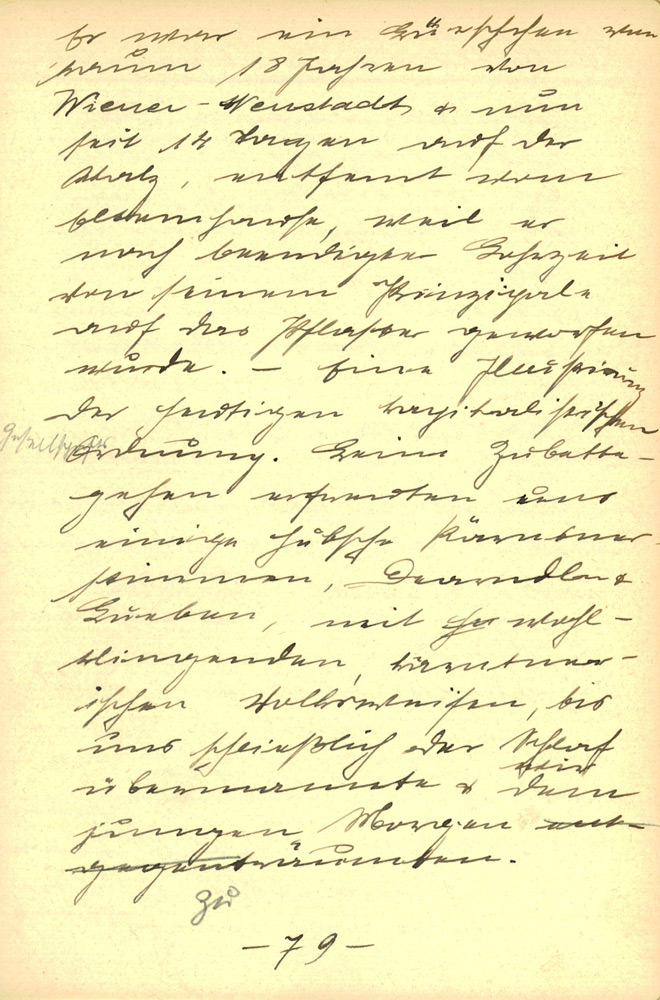 Er war ein Bürschchen von
kaum 18 Jahren von
Wiener-Neustadt & nun
seit 14 Tagen auf der
Walz, entfernt vom
Elternhause, weil er
nach beendigter Lehrzeit
von seinem Prinzipale
auf das Pflaster geworfen
wurde. – Eine Illustrierung
der heutigen kapitalistischen
Gesellschafts
Ordnung. Beim Zubette-
gehen erfreuten uns
einige hübsche Kärntner-
stimmen, Dearndln &
Bueben, mit wohl-
klingenden, kärntner-
ischen Volksweisen, bis
uns schließlich der Schlaf
übermannte & wir dem
jungen Morgen ent-
gegenträumten.
zu
– 79 –